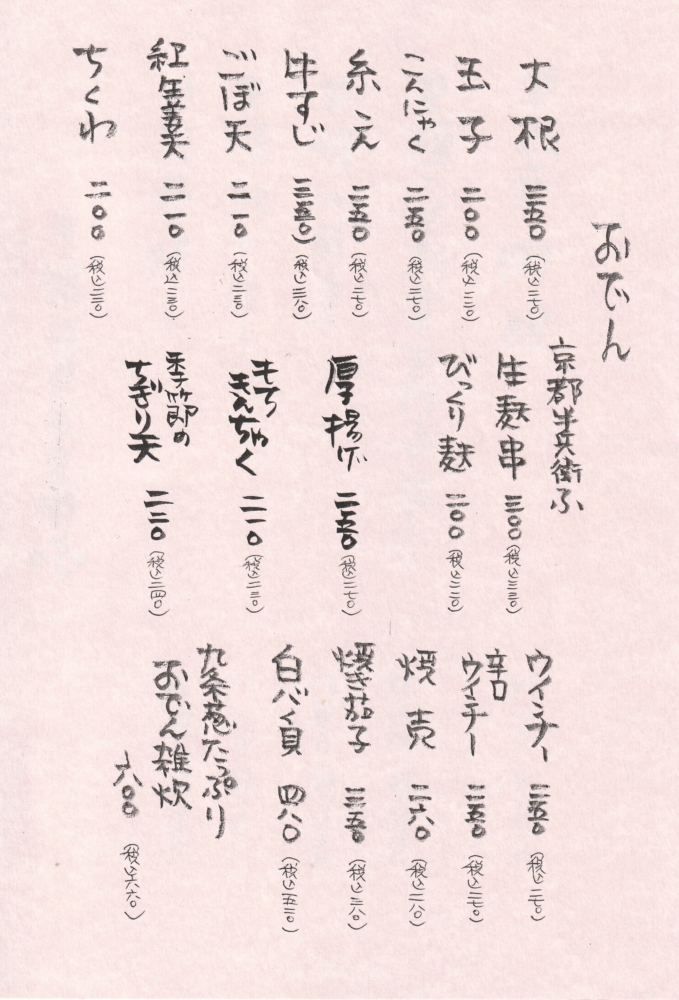 おでん
大根 二五〇 (税込二七〇)
玉子 二〇〇 (税込二二〇)
こんにゃく 二五〇 (税込二七〇)
糸こん 二五〇 (税込二七〇)
牛すじ 三五〇 (税込三八〇)
ごぼ天 二一〇 (税込二三〇)
紅生姜天 二一〇 (税込二三〇)
ちくわ 二〇〇 (税込二二〇)
京都半兵衛ふ
生麩串 三〇〇 (税込三三〇)
びっくり麩 二〇〇 (税込二二〇)
厚揚げ 二五〇 (税込二七〇)
もちきんちゃく 二一〇 (税込二三〇)
季節の
ちぎり天 二二〇 (税込二四〇)
ウインナー 二五〇 (税込二七〇)
辛口
ウインナー 二五〇 (税込二七〇)
焼売 二六〇 (税込二八〇)
焼き茄子 三五〇 (税込三八〇)
白バイ貝 四八〇 (税込五三〇)
九条葱たっぷり
おでん雑炊
六〇〇 (税込六六〇)